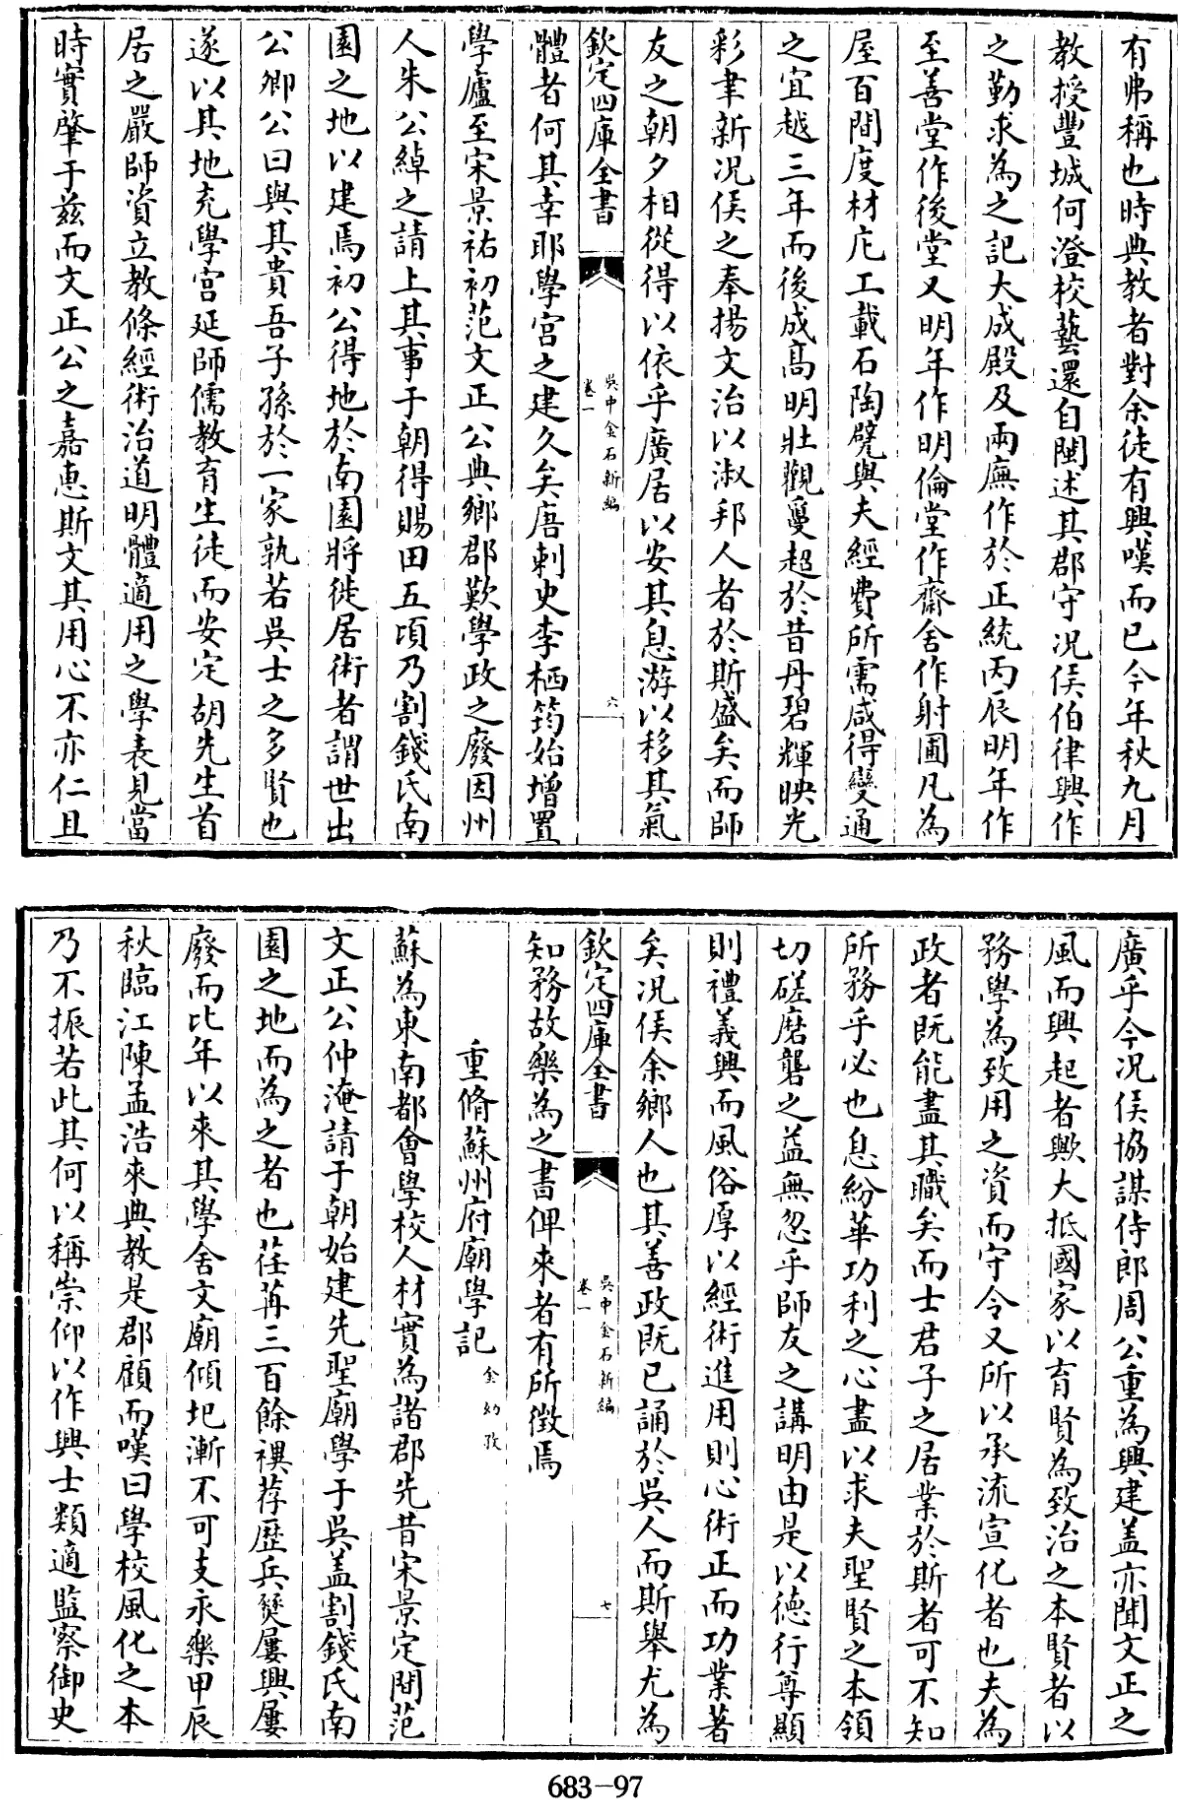 有弗稱也時典教者對余徒有興嘆而已今年秋九月
教授豐城何澄校藝還自閩述其郡守况侯伯律興作
之勤求為之記大成殿及兩廡作於正統丙辰明年作
至善堂作後堂又明年作明倫堂作齋舍作射圃凡為
屋百間度材庀工載石陶甓與夫經費所需咸得變通
之宜越三年而後成髙明壯觀敻超於昔丹碧輝映光
彩聿新况侯之奉揚文治以淑邦人者於斯盛矣而師
友之朝夕相從得以依乎廣居以安其息游以移其氣
欽定四庫全書
吳中金石新編
卷一
六
體者何其幸耶學宫之建久矣唐刺史李栖筠始增置
學廬至宋景祐初范文正公典鄉郡歎學政之廢因州
人朱公綽之請上其事于朝得賜田五頃乃割錢氏南
園之地以建焉初公得地於南園將徙居術者謂世出
公卿公曰與其貴吾子孫於一家孰若吳士之多賢也
遂以其地充學宫延師儒教育生徒而安定胡先生首
居之嚴師資立教條經術治道明體適用之學表見當
時實肇于兹而文正公之嘉恵斯文其用心不亦仁且
廣乎今况侯協謀侍郎周公重為興建盖亦聞文正之
風而興起者歟大抵國家以育賢為致治之本賢者以
務學為致用之資而守令又所以承流宣化者也夫為
政者既能盡其職矣而士君子之居業於斯者可不知
所務乎必也息紛華功利之心盡以求夫聖賢之本領
切磋磨礱之益無忽乎師友之講明由是以徳行尊顯
則禮義興而風俗厚以經術進用則心術正而功業著
矣况侯余鄉人也其善政既已誦於吳人而斯舉尤為
欽定四庫全書
吳中金石新編
卷一
七
知務故樂為之書俾來者有所徵焉
重脩蘇州府廟學記 金幼孜
蘇為東南都會學校人材實為諸郡先昔宋景定間范
文正公仲淹請于朝始建先聖廟學于吳盖割錢氏南
園之地而為之者也荏苒三百餘禩荐歴兵燹屢興屢
廢而比年以來其學舍文廟傾圮漸不可支永樂甲辰
秋臨江陳孟浩來典教是郡顧而嘆曰學校風化之本
乃不振若此其何以稱崇仰以作興士類適監察御史
683-97